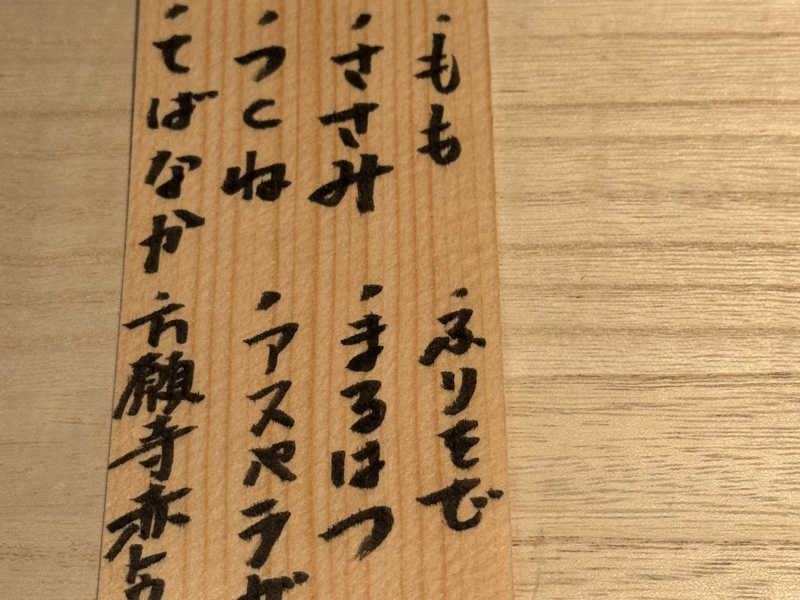 ・もも
・ふりそで
・ささみ
・まるはつ
・つくね
・アスパラガ
・てばなか
・万願寺赤トウ